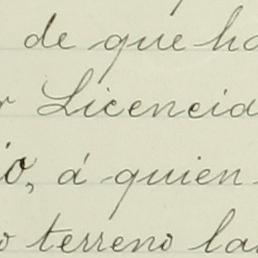 de que ha
r Licencia
io, á quien
o terreno la